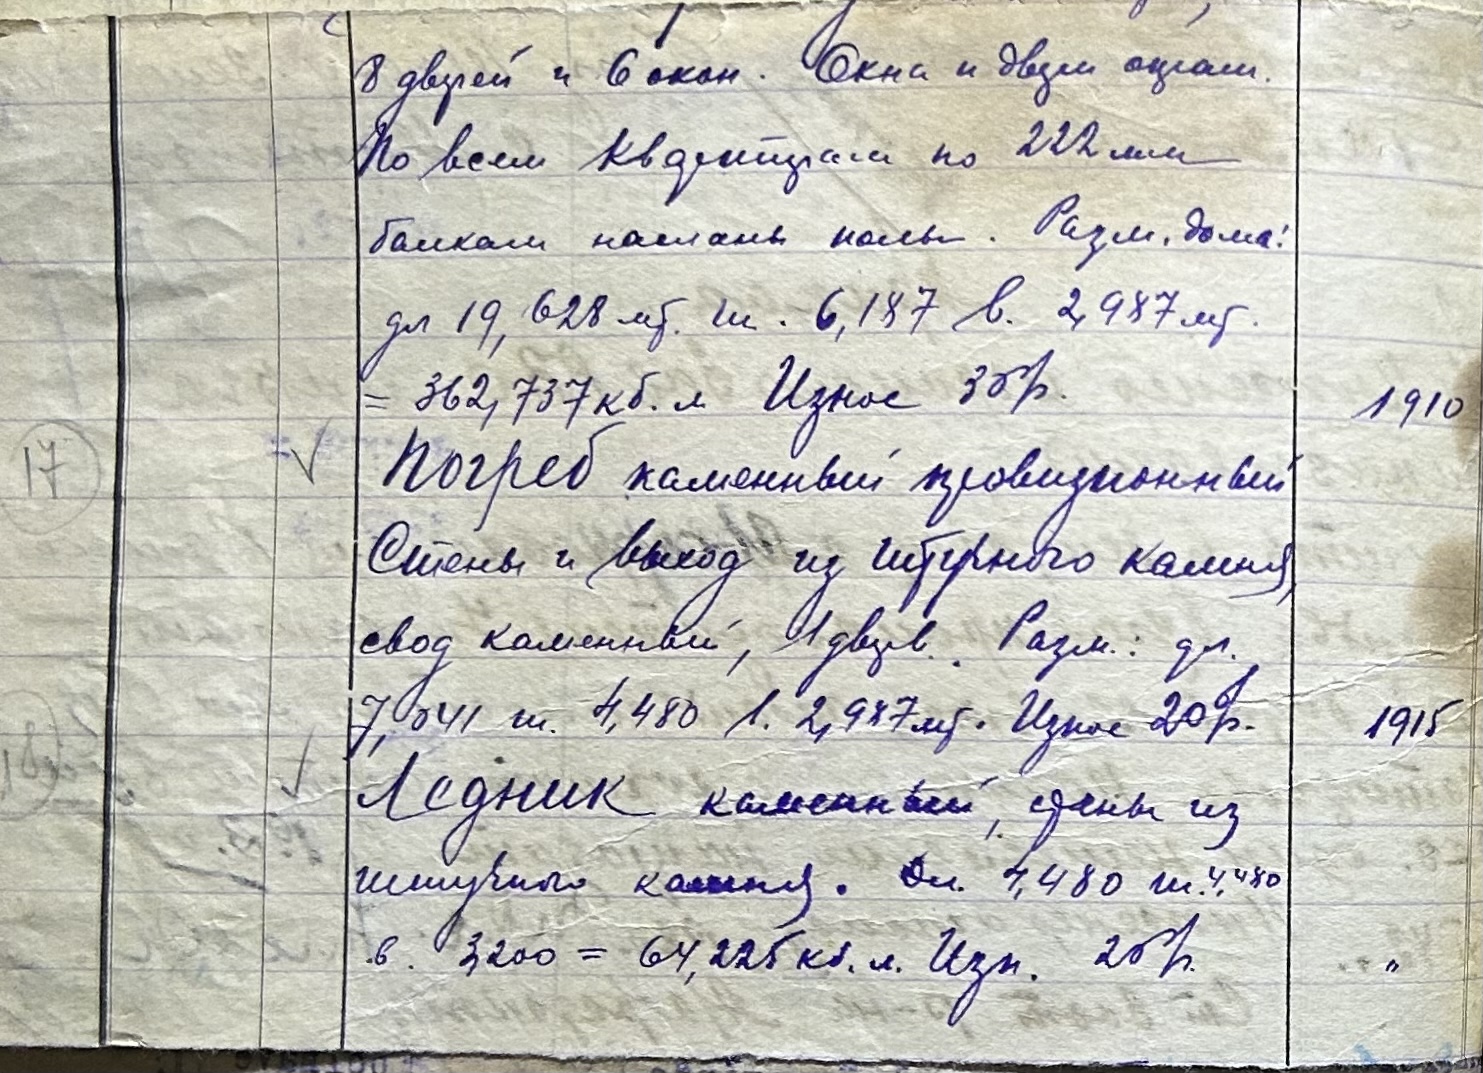 8 дверей и 6 окон. Окна и двери окраш.
По всем квартирам по 222 мм
балкам настланы полы. Разм. дома:
дл 19,628 мт. ш. 6,187 в. 2,987 мт.
= 362,737 кб. м Износ 35%. 1910
17 Погреб каменный провизионный
Стены и выход из штучного камня,
свод каменный, 1 дверь. Разм.: дл.
7,541 ш. 4,480 в. 2,987 мт. Износ 20%. 1915
18 Ледник каменный, стены из
штучного камня. Дл. 4,480 ш. 4,480
в. 3,200 = 64,225 кб. м. Изн. 25%. "